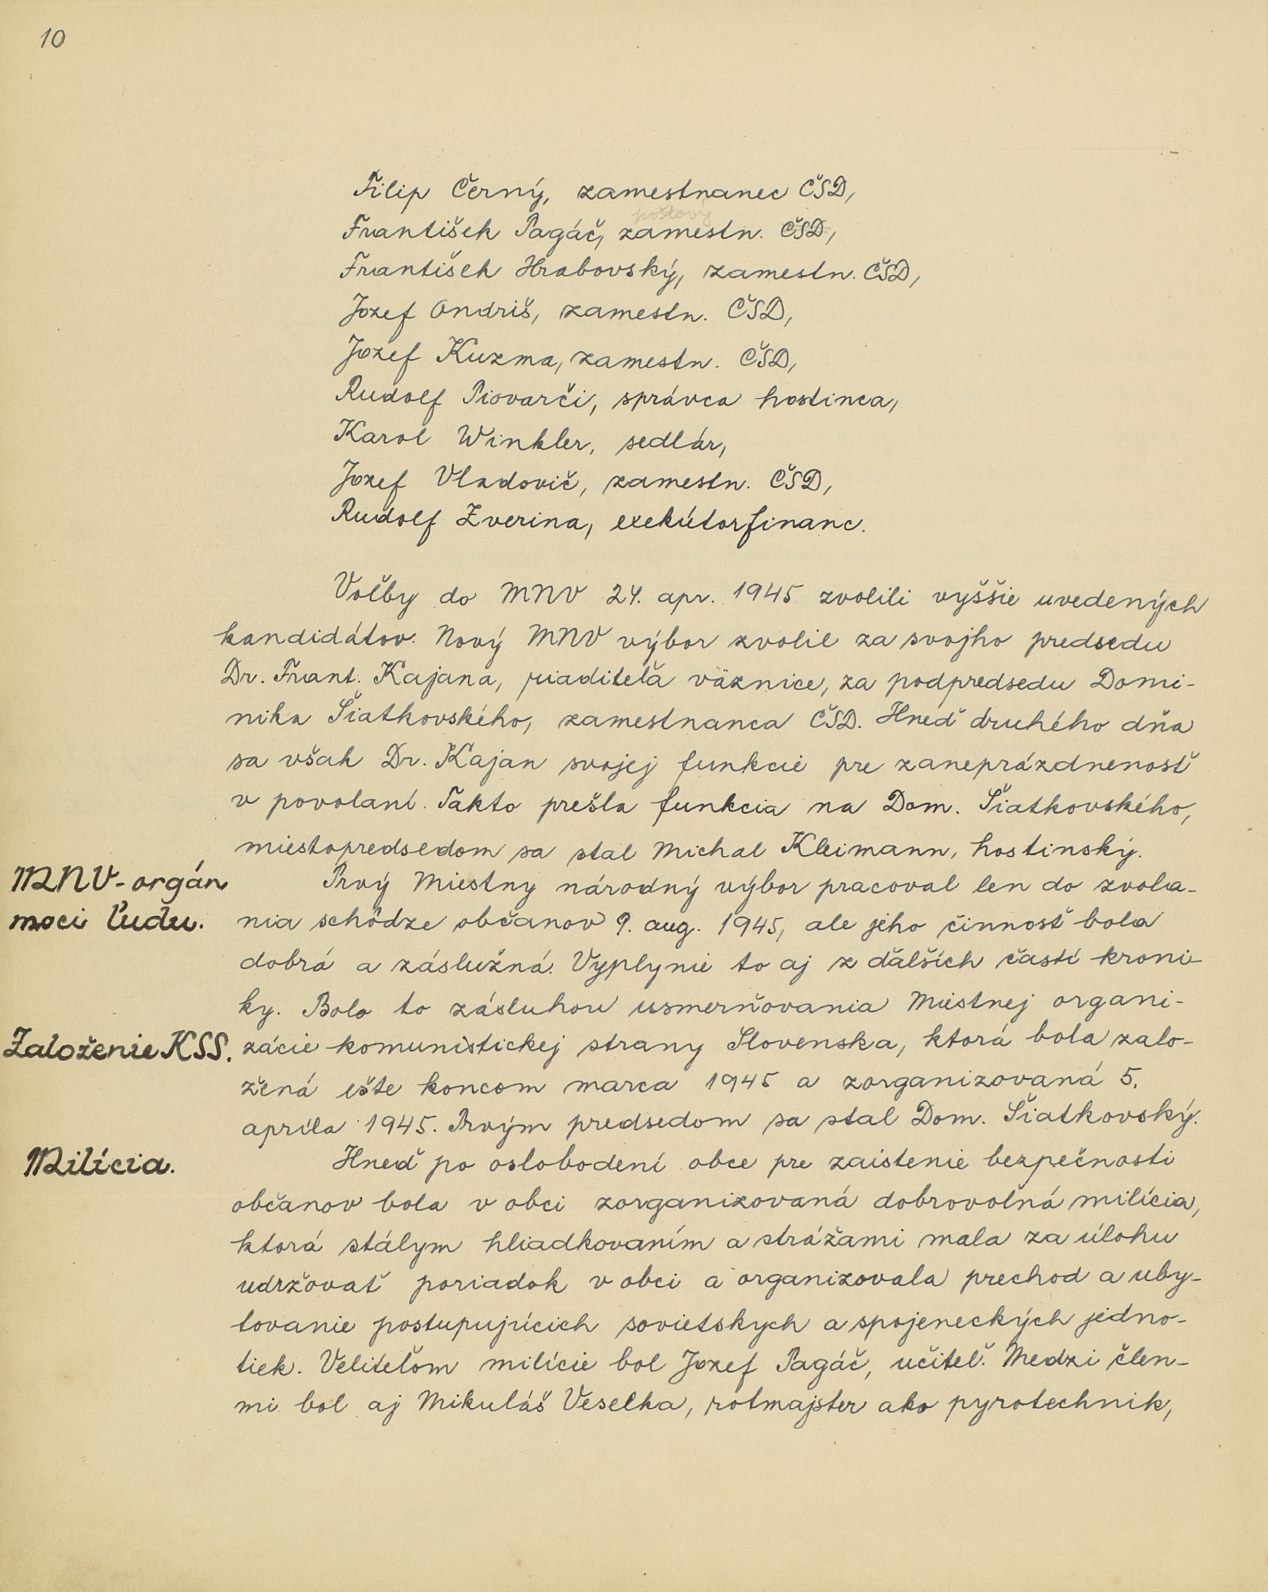 10
Filip Černý, zamestnanec ČSD,
poštový
František Pagáč, zamestn. ČSD,
František Hrabovský, zamestn. ČSD,
Jozef Ondriš, zamestn. ČSD,
Jozef Kuzma, zamestn. ČSD,
Rudolf Piovarči, správca hostinca,
Karol Winkler, sedlár,
Jozef Vladovič, zamestn. ČSD,
Rudolf Zverina, exekútor financ.
Voľby do MNV 24. apr. 1945 zvolili vyššie uvedených
kandidátov. Nový MNV výbor zvolil za svojho predsedu
Dr. Frant. Kajana, riaditeľa väznice, za podpredsedu Domi-
nika Šiatkovského, zamestnanca ČSD. Hneď druhého dňa
sa však Dr. Kajan svojej funkcie pre zaneprázdnenosť
v povolaní. Takto prešla funkcia na Dom. Šiatkovského,
miestopredsedom sa stal Michal Kleimann, hostinský.
MNV - orgán
moci ľudu.
Prvý Miestny národný výbor pracoval len do zvola-
nia schôdze občanov 9. aug. 1945, ale jeho činnosť bola
dobrá a záslužná. Vyplynie to aj z ďalších častí kroni-
ky. Bolo to zásluhou usmerňovania Miestnej organi-
Založenie KSS.
zácie komunistickej strany Slovenska, ktorá bola zalo-
žená ešte koncom marca 1945 a zorganizovaná 5.
apríla 1945. Prvým predsedom sa stal Dom. Šiatkovský.
Milícia.
Hneď po oslobodení obce pre zaistenie bezpečnosti
občanov bola v obci zorganizovaná dobrovoľná milícia,
ktorá stálym hliadkovaním a strážami mala za úlohu
udržovať poriadok v obci a organizovala prechod a uby-
tovanie postupujúcich sovietskych a spojeneckých jedno-
tiek. Veliteľom milície bol Jozef Pagáč, učiteľ. Medzi člen-
mi bol aj Mikuláš Veselka, rotmajster ako pyrotechnik,